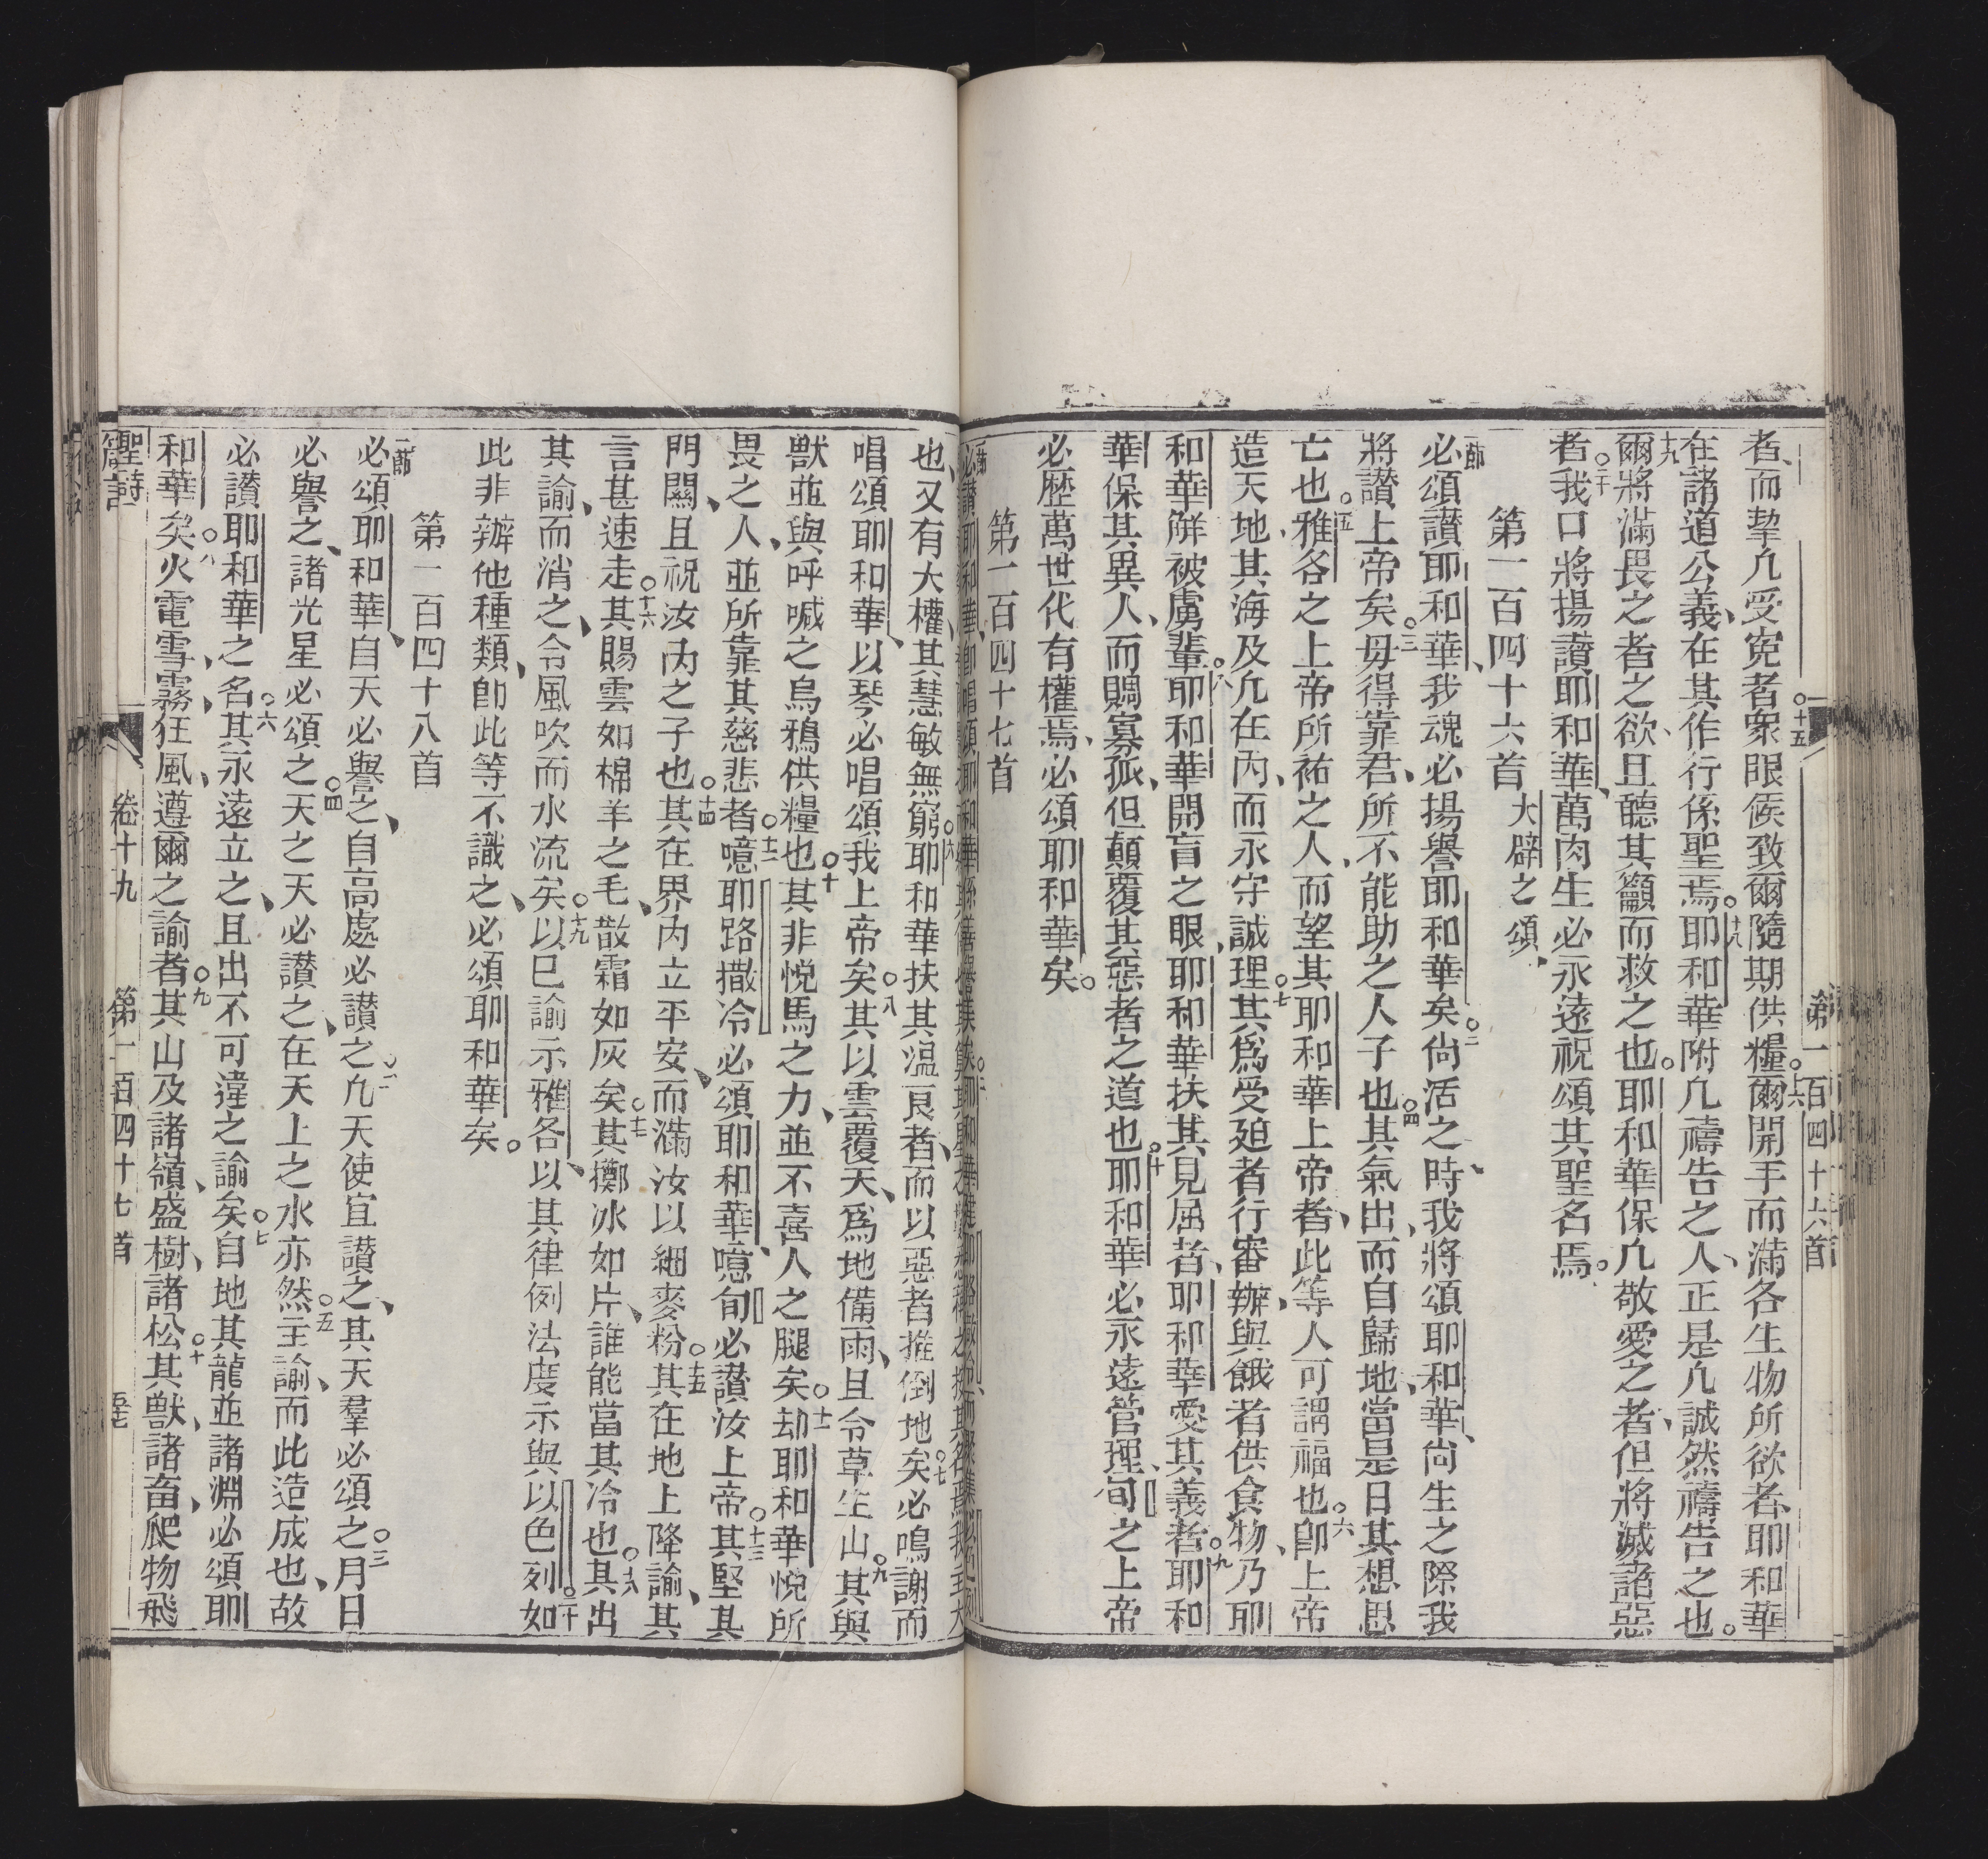 第一百四十六首
者、而挚凡受寃者衆眼俟致爾隨期供糧○十六爾開手而滿各生物所欲者、耶和華
在諸道公義、在其作行係聖焉○十八耶和華附凡禱告之人、正是凡誠然禱告之也。
十九爾將滿畏之者之欲、且聽其籲而救之也○耶和華保凡敬愛之者、但將滅諸惡
者○二十我口將揚讚耶和華、萬肉生必永遠祝頌其聖名焉。
第一百四十六首 大辟之頌、
一節必頌讚耶和華、我魂必揚譽耶和華矣○二尙活之時、我將頌耶和華、尙生之際我
將讚上帝矣○三毋得靠君、所不能助之人子也○四其氣出、而自歸地、當是日其想思
亡也○五雅各之上帝所祐之人、而望其耶和華上帝者、此等人可謂福也○六卽上帝
造天、地、其海及凡在內、而永守誠理○七其爲受廹者行審辦、與餓者供食物、乃耶
和華觧被虜輩○八耶和華開盲之眼、耶和華扶其見屈者、耶和華愛其義者○九耶和
華保其異人、而賙寡孤、但顛覆其惡者之道也○十耶和華必永遠管理、旬之上帝
必歷萬世代有權焉、必頌耶和華矣。
第一百四十七首
一節必讚耶和華、
也、又有大權、其慧敏無窮○六耶和華扶其温良者、而以惡者推倒地矣○七必鳴謝而
唱頌耶和華、以琴必唱頌我上帝矣○八其以雲覆天、爲地備雨、且令草生山○九其與
獸並與呼喊之烏鴉供糧也○十其非悅馬之力、並不喜人之腿矣○十一却耶和華悅所
畏之人、並所靠其慈悲者○十二噫耶路撒冷必頌耶和華、噫旬必讚汝上帝○十三其堅其
門闗、且祝汝內之子也○十四其在界內立平安、而滿汝以細麥粉○十五其在地上降諭、其
言甚速走○十六其賜雲如棉羊之毛、散霜如灰矣○十七其擲冰如片、誰能當其冷也○十八其出
其諭、而消之、令風吹而水流矣○十九以己諭示雅各、以其律例法度示與以色列○二十如
此非辦他種類、卽此等不識之、必頌耶和華矣。
第一百四十八首
一節必頌耶和華、自天必譽之、自高處必讚之○二凡天使宜讚之、其天羣必頌之○三月日
必譽之、諸光星必頌之○四天之天必讚之、在天上之水亦然○五主諭、而此造成也、故
必讚耶和華之名○六其永遠立之、且出不可違之諭矣○七自地其龍並諸淵必頌耶
和華矣○八火電雪、霧、狂風、遵爾之諭者○九其山及諸嶺、盛樹、諸松○十其獸、諸畜、爬物飛
聖詩 卷十九 第一百四十七首